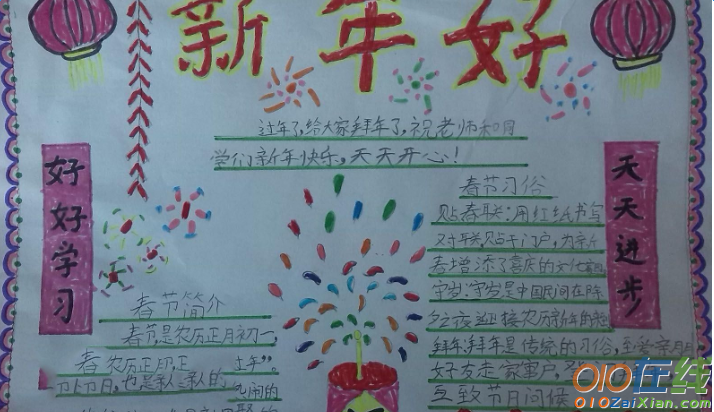 新年好
过年了,给大家拜年了,祝老师和同
学们新年快乐,天天开心!
好好学习
天天进步
春节习俗
贴春联:用红纸书写
对联,贴于门户,为新
春增添了喜庆的文化
守岁:守岁是中国民间在除
夕夜迎接农历新年的
拜年:拜年是传统的习俗,
好友走家串户,
互致节日问候
春节简介
春节是农历正月初一,
春 农历正月,正 过年”。
节日,也是
010在线
010ZaiXian.com